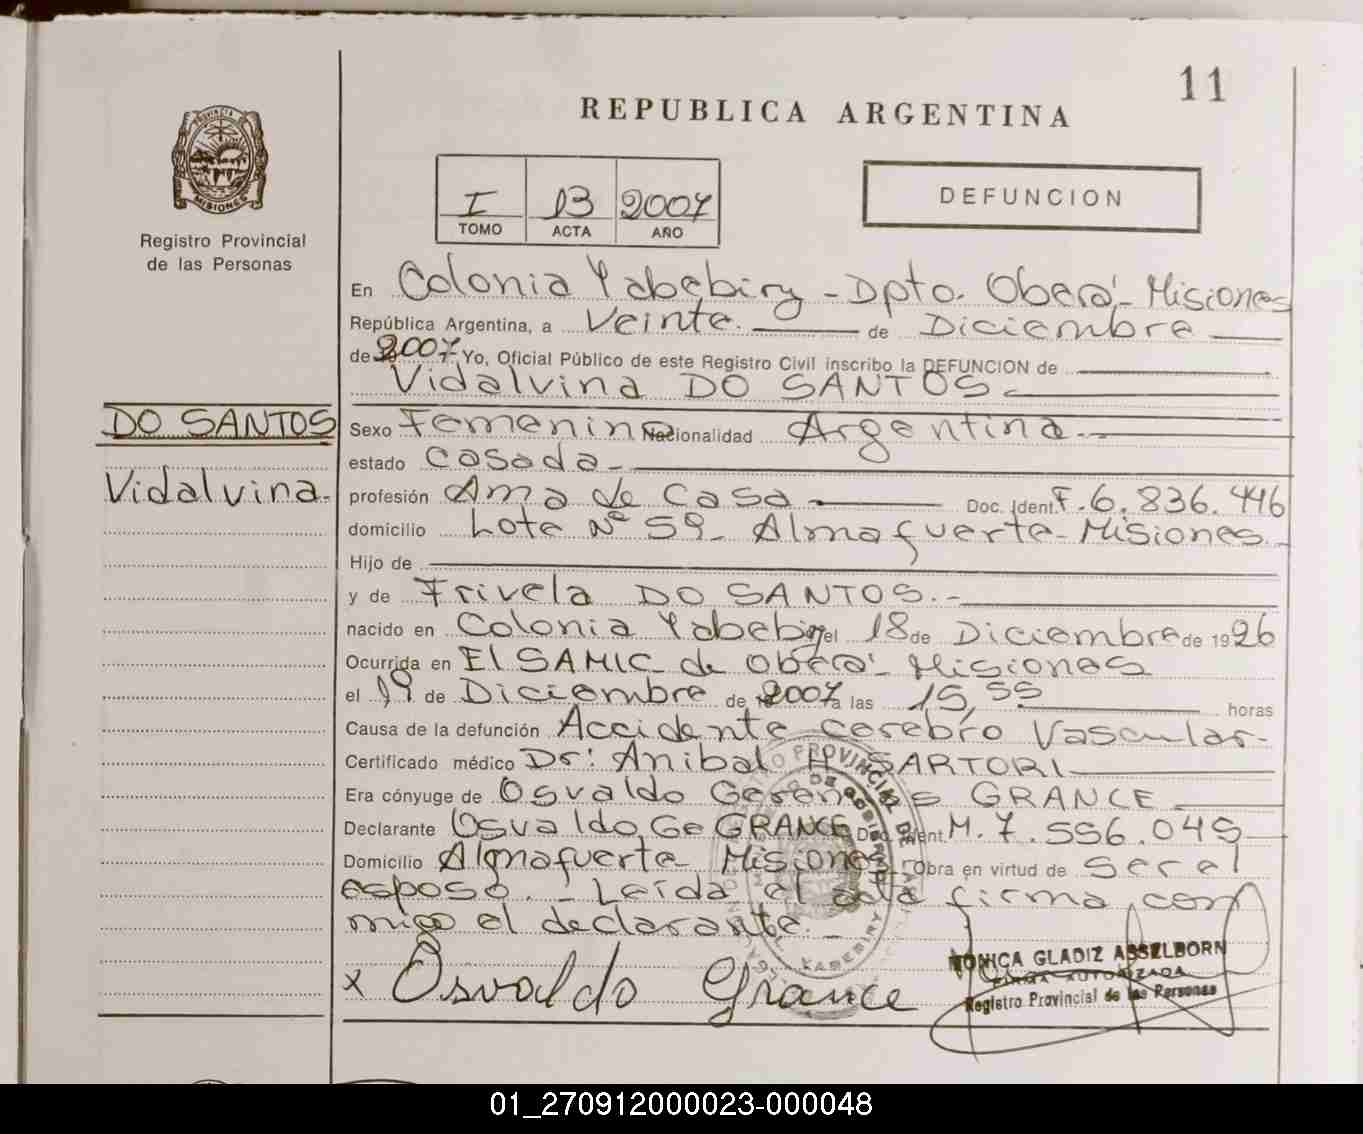 11
REPUBLICA ARGENTINA
PROVINCIA D
MISIONES
I 13 2007
TOMO ACTA AÑO
DEFUNCION
Registro Provincial
de las Personas
En Colonia Yabebiry - Dpto. Oberá - Misiones
República Argentina, a Veinte de Diciembre
de 2007 Yo, Oficial Público de este Registro Civil inscribo la DEFUNCION de
Vidalvina DO SANTOS
DO SANTOS
Vidalvina
Sexo Femenino Nacionalidad Argentina
estado Casada
profesión Ama de Casa Doc. Ident. F. 6.836.446
domicilio Lote Nº 59 - Almafuerte - Misiones
Hijo de
y de Frivela DO SANTOS.-
nacido en Colonia Yabebiry el 18 de Diciembre de 1926
Ocurrida en El SAMIC de Oberá - Misiones
el 19 de Diciembre de 2007 a las 15,55 horas
Causa de la defunción Accidente cerebro Vascular-
Certificado médico Dr: Anibal H. SARTORI
Era cónyuge de Osvaldo GRANCE
Declarante Osvaldo Ge GRANCE Doc. Ident. M. 7.556.049
Domicilio Almafuerte Misiones Obra en virtud de ser el
esposo. - Leída el acta firma con
migo el declarante. -
x Osvaldo Grance
MONICA GLADIZ ASSELBORN
FIRMA AUTORIZADA
Registro Provincial de las Personas
01_270912000023-000048